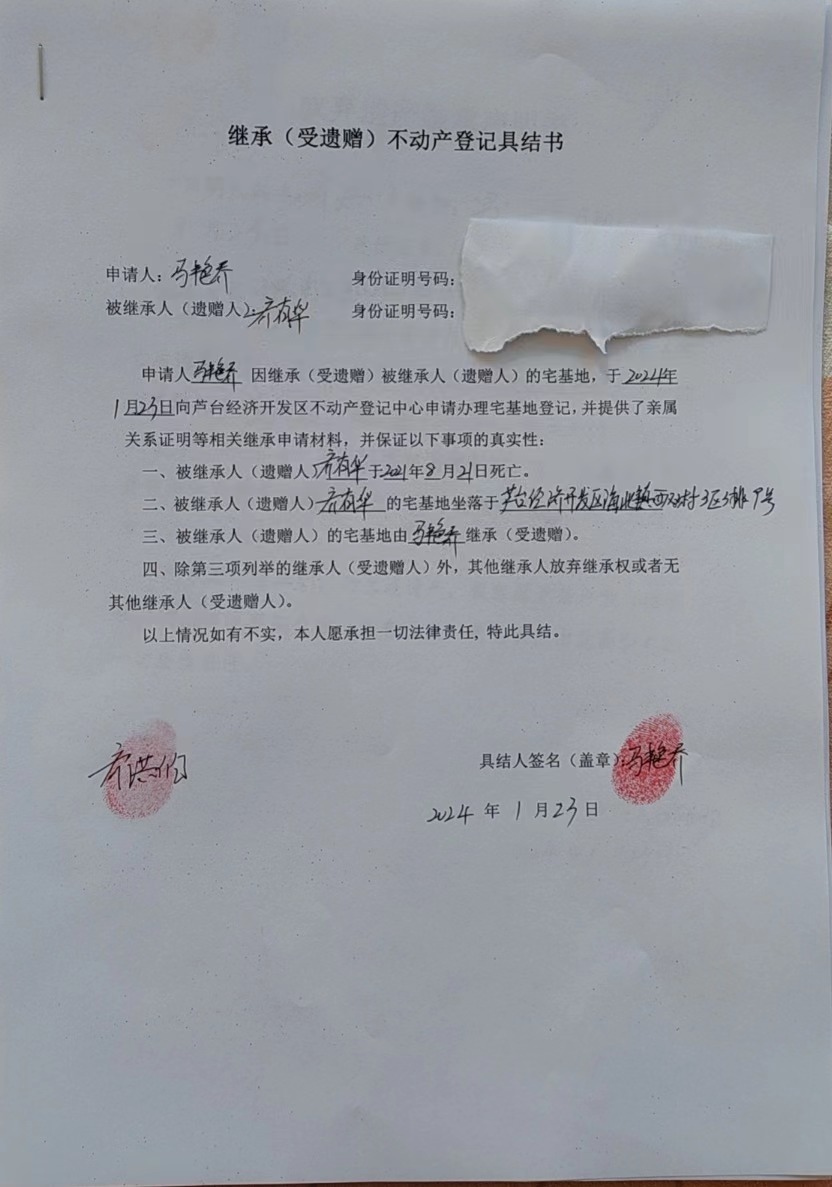 继承（受遗赠）不动产登记具结书
申请人：马艳乔 身份证明号码：
被继承人（遗赠人）：齐有华 身份证明号码：
申请人马艳乔 因继承（受遗赠）被继承人（遗赠人）的宅基地，于 2024年
1月23日向芦台经济开发区不动产登记中心申请办理宅基地登记，并提供了亲属
关系证明等相关继承申请材料，并保证以下事项的真实性：
一、被继承人（遗赠人）齐有华于2021年8月21日死亡。
二、被继承人（遗赠人）齐有华 的宅基地坐落于芦台经济开发区海北镇西村3区5排 号
三、被继承人（遗赠人）的宅基地由马艳乔继承（受遗赠）。
四、除第三项列举的继承人（受遗赠人）外，其他继承人放弃继承权或者无
其他继承人（受遗赠人）。
以上情况如有不实，本人愿承担一切法律责任, 特此具结。
齐洪伯
具结人签名（盖章）：马艳乔
2024 年 1 月 23 日